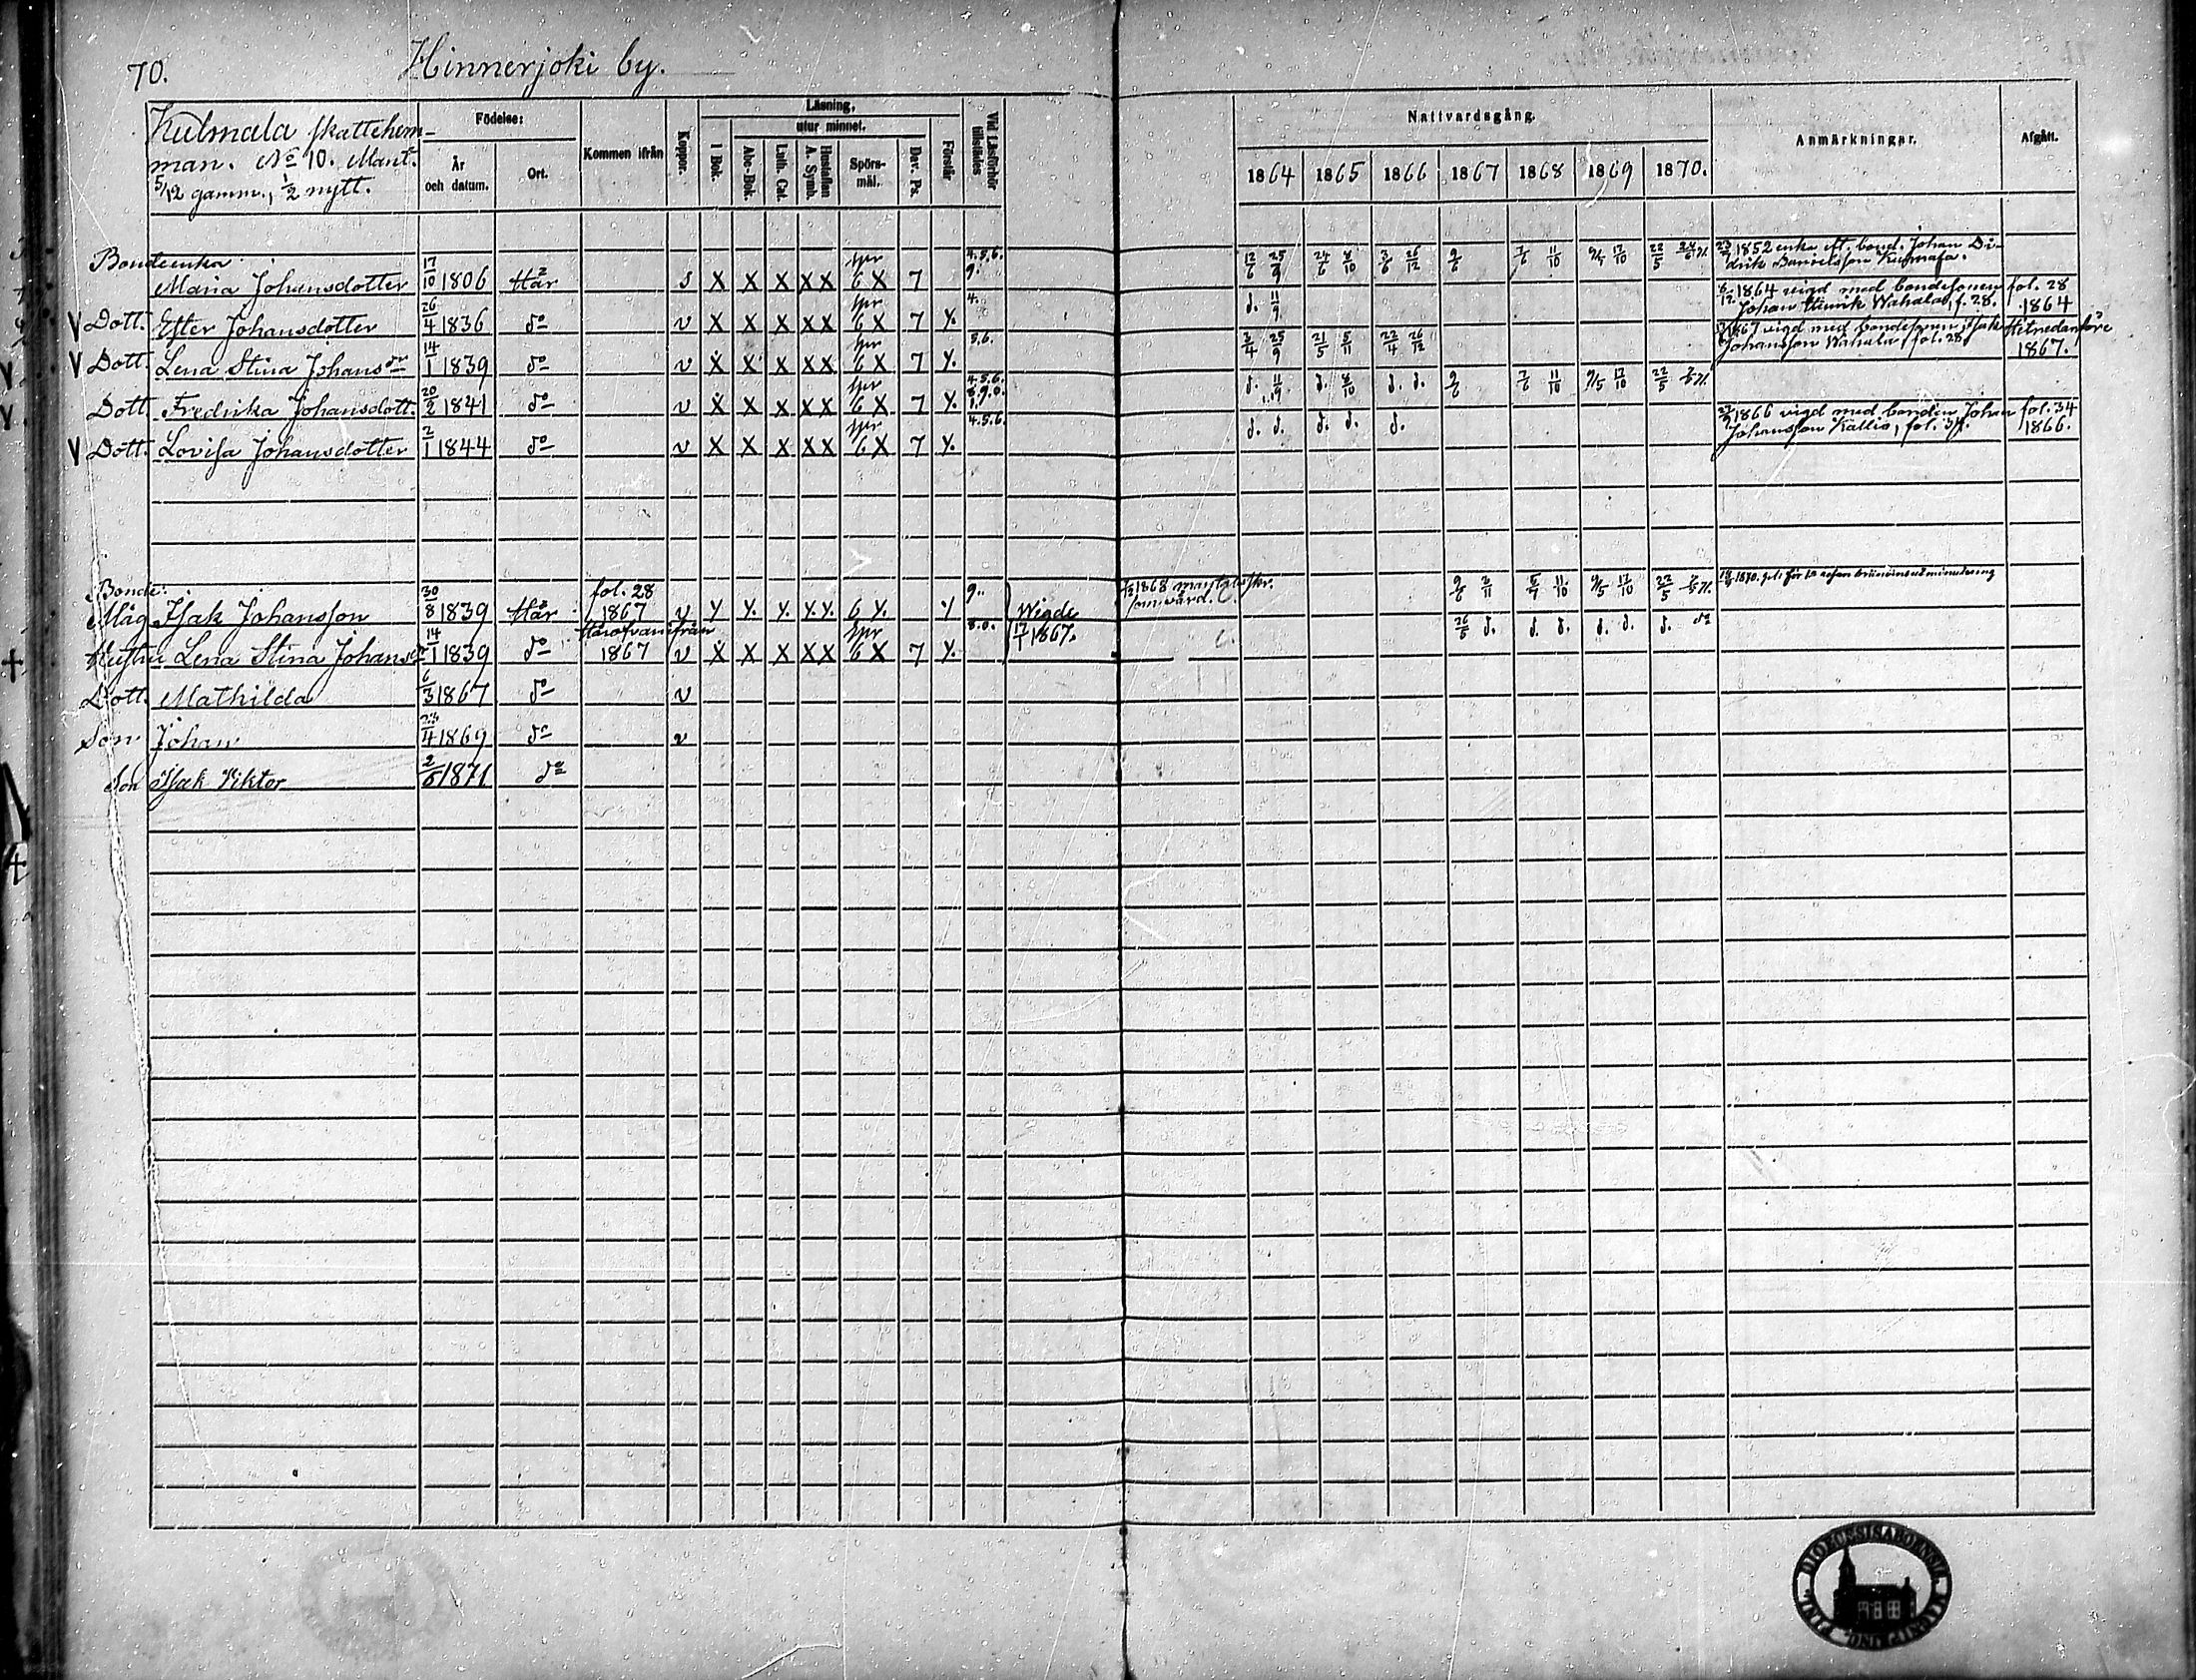 70.
Hinnerjoki by.
Kulmala skattehem-
man. No 10. Mant.
5/12 gamm., 1/2 nytt.
Födelse:
År och datum.
Ort.
Kommen ifrån
Koppor.
Läsning,
utur minnet.
I Bok.
Abc-Bok.
Luth. Cat.
Hustaflan A. Symb.
Spörs-mål.
Dav. Ps.
Förstår
Vid Läsförhör tillstädes
Nattvardsgång.
1864 1865 1866 1867 1868 1869 1870.
Anmärkningar.
Afgått.
Bondeenka:
Maria Johansdotter 17/10 1806 Här s X X X XX spr 6 X 7 4.5.6. 9. 12/6 25/9 9/6 11/10 1852 enka eft. bond. Johan Di-
drik Danielsson Kulmala.
V Dott. Ester Johansdotter 26/4 1836 do v X X X XX spr 6 X 7 Y. 4. d. 11/9 6/12 1864 vigd med bondesonen fol. 28
Johan Henrik Wahala, f. 28. 1864
V Dott. Lena Stina Johansdr 14/1 1839 do v X X X XX spr 6 X 7 Y. 5.6. 3/4 25/9 21/5 5/11 22/4 26/12 1867 vigd med bondesonen Isak Hitnedanföre
Johansson Wahala, fol. 28. 1867.
Dott. Fredrika Johansdott. 20/2 1841 do v X X X XX spr 6 X 7 Y. 4.5.6. d. 11/9 d. 8/10 d. d. 9/6 11/10 9/5 17/10 22/5
V Dott. Lovisa Johansdotter 2/1 1844 do v X X X XX spr 6 X 7 Y. 4.5.6. d. d. d. d. d. 1866 vigd med bonden Johan fol. 34
Johansson Kallio, fol. 34. 1866.
Bonde:
Måg Isak Johansson 30/8 1839 Här fol. 28 1867 v Y Y. Y. Y.Y. 6 Y. Y 9. Wigde 1868 mantalsskr.
som värd. 9/6 11/10 9/5 17/10 22/5
Hustru Lena Stina Johansdr 14/1 1839 do Härofvanifrån 1867 v X X X XX spr 6 X 7 Y. 8.0. 1867. 26/5 d. d. d. d. d. d. do
Dott. Mathilda 6/3 1867 do v
Son Johan 24/4 1869 do v
Son Isak Viktor 2/5 1871 do